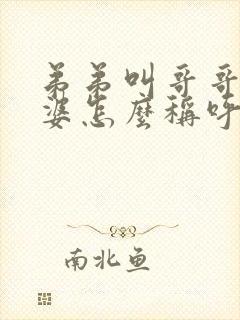 弟弟叫哥哥
婆怎麼稱呼
南北鱼